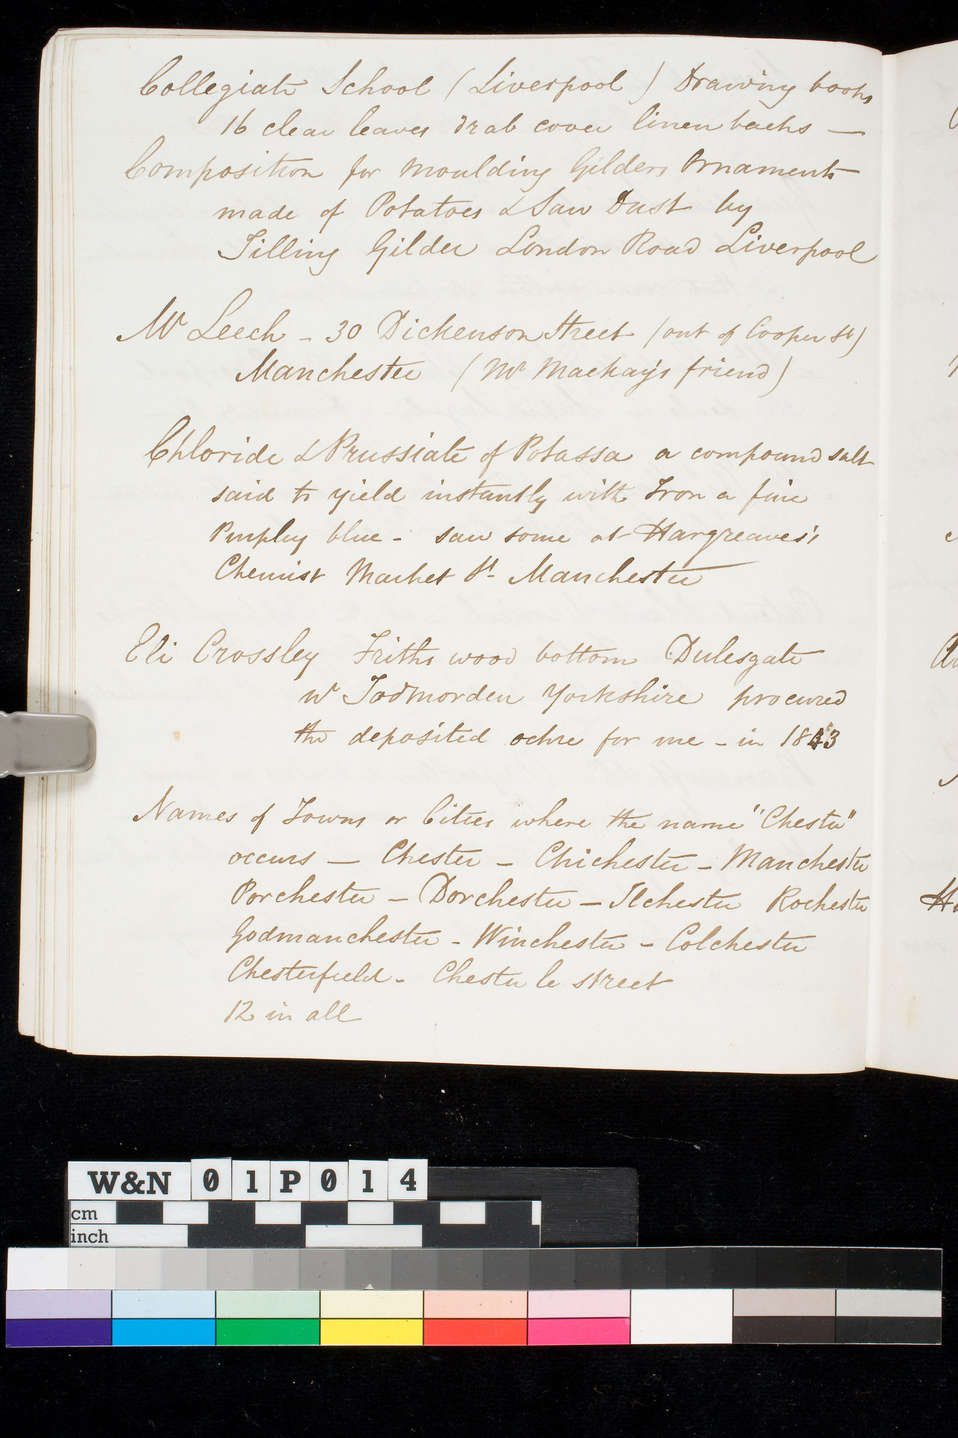 Collegiate School (Liverpool) Drawing books
16 clear leaves drab cover linen backs —
Composition for moulding Gilders Ornaments
made of Potatoes & Saw Dust by
Tilling Gilder London Road Liverpool
Mr Leech - 30 Dickenson Street (out of Cooper St)
Manchester (Mr Mackay's friend)
Chloride & Prussiate of Potassa a compound salt
said to yield instantly with Iron a fine
Purpley blue - saw some at Hargreaves's
Chemist Market St. Manchester
Eli Crossley Friths wood bottom Dulesgate
nr Todmorden Yorkshire procured
the deposited ochre for me - in 1843
Names of Towns or Cities where the name "Chester"
occurs — Chester - Chichester - Manchester
Porchester - Dorchester - Ilchester Rochester
Godmanchester - Winchester - Colchester
Chesterfield - Chester le street
12 in all
W&N 01P014
cm
inch